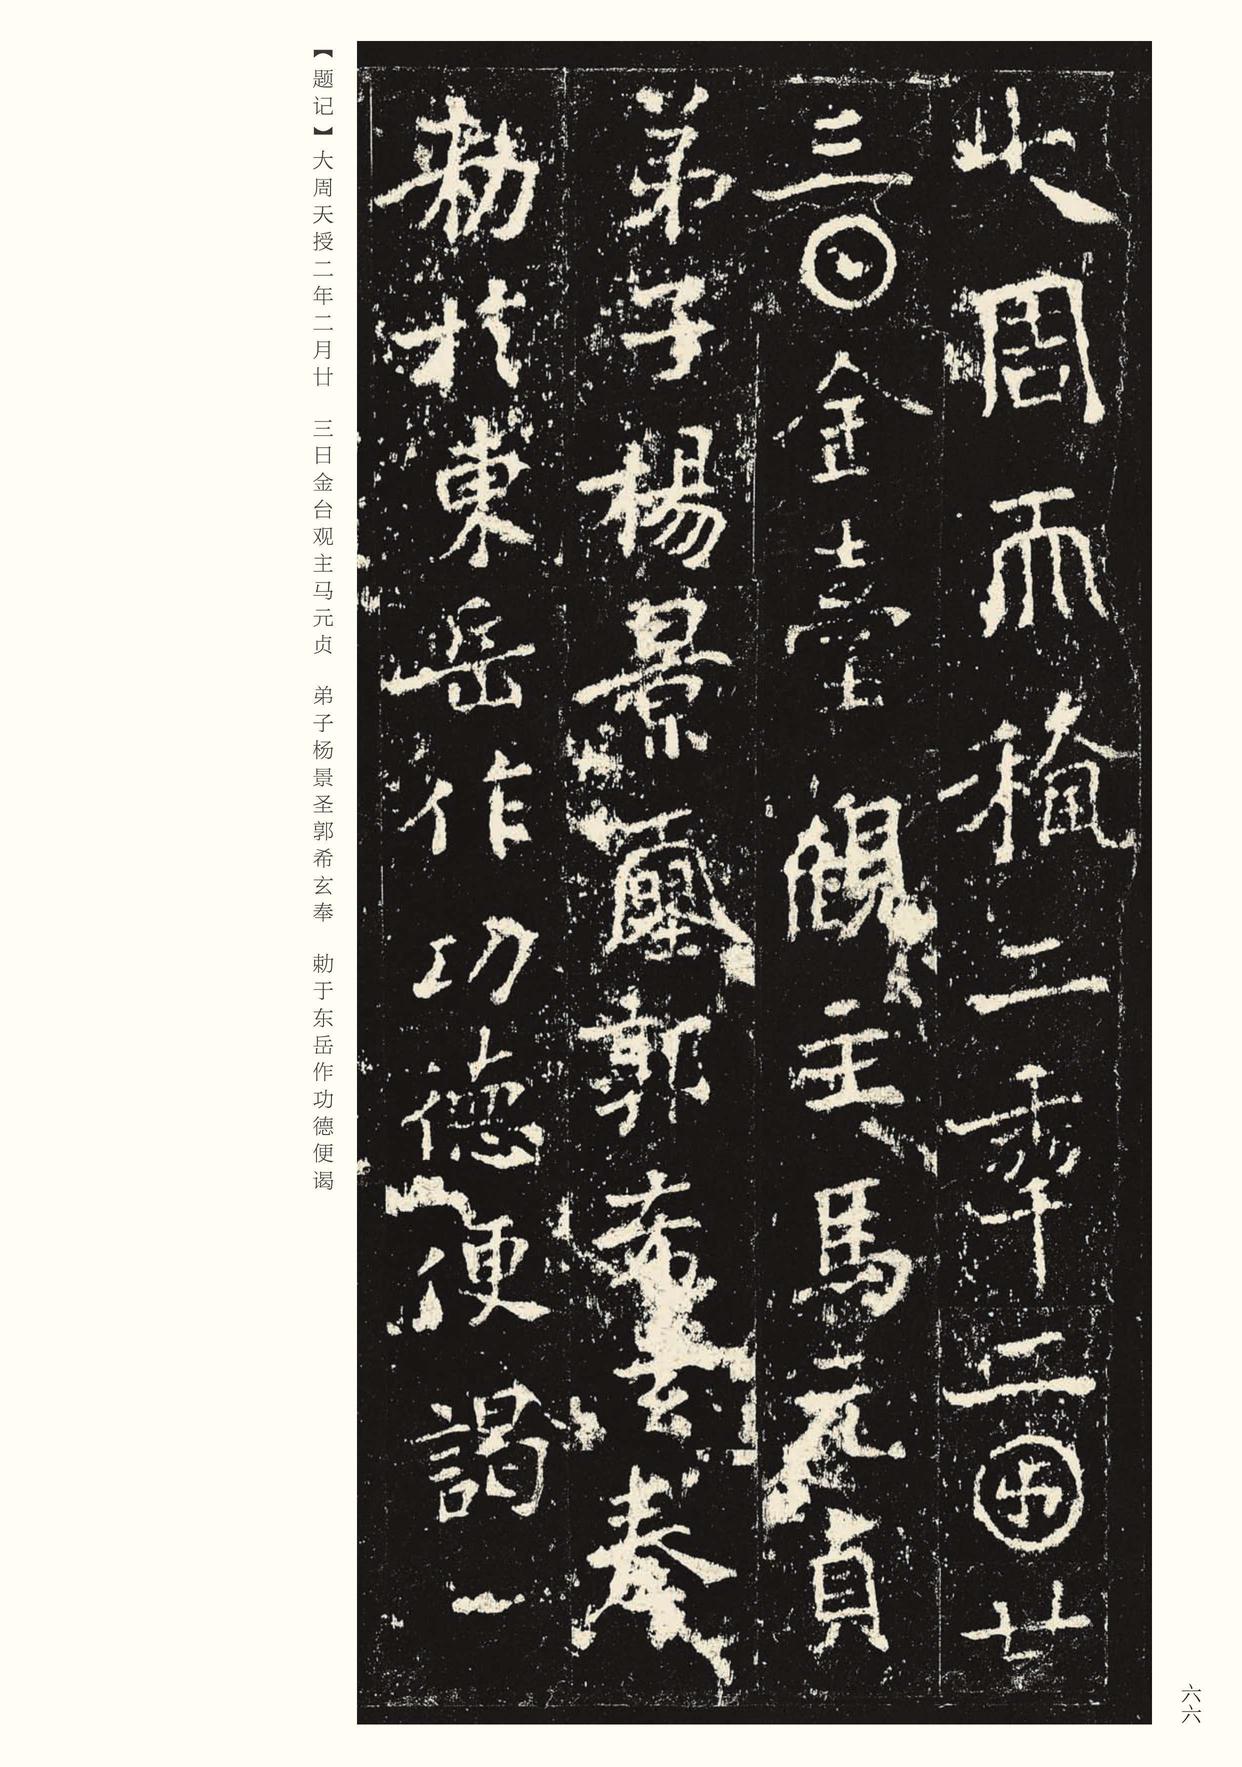 大周𠀑𥠢二𠡦二𠥱廿
三𡆠金臺觀主馬元貞
弟子楊景郭希玄奉
勅於東岳作功德便謁一
【题记】大周天授二年二月廿 三日金台观主马元贞 弟子杨景圣郭希玄奉 勅于东岳作功德便谒
六六